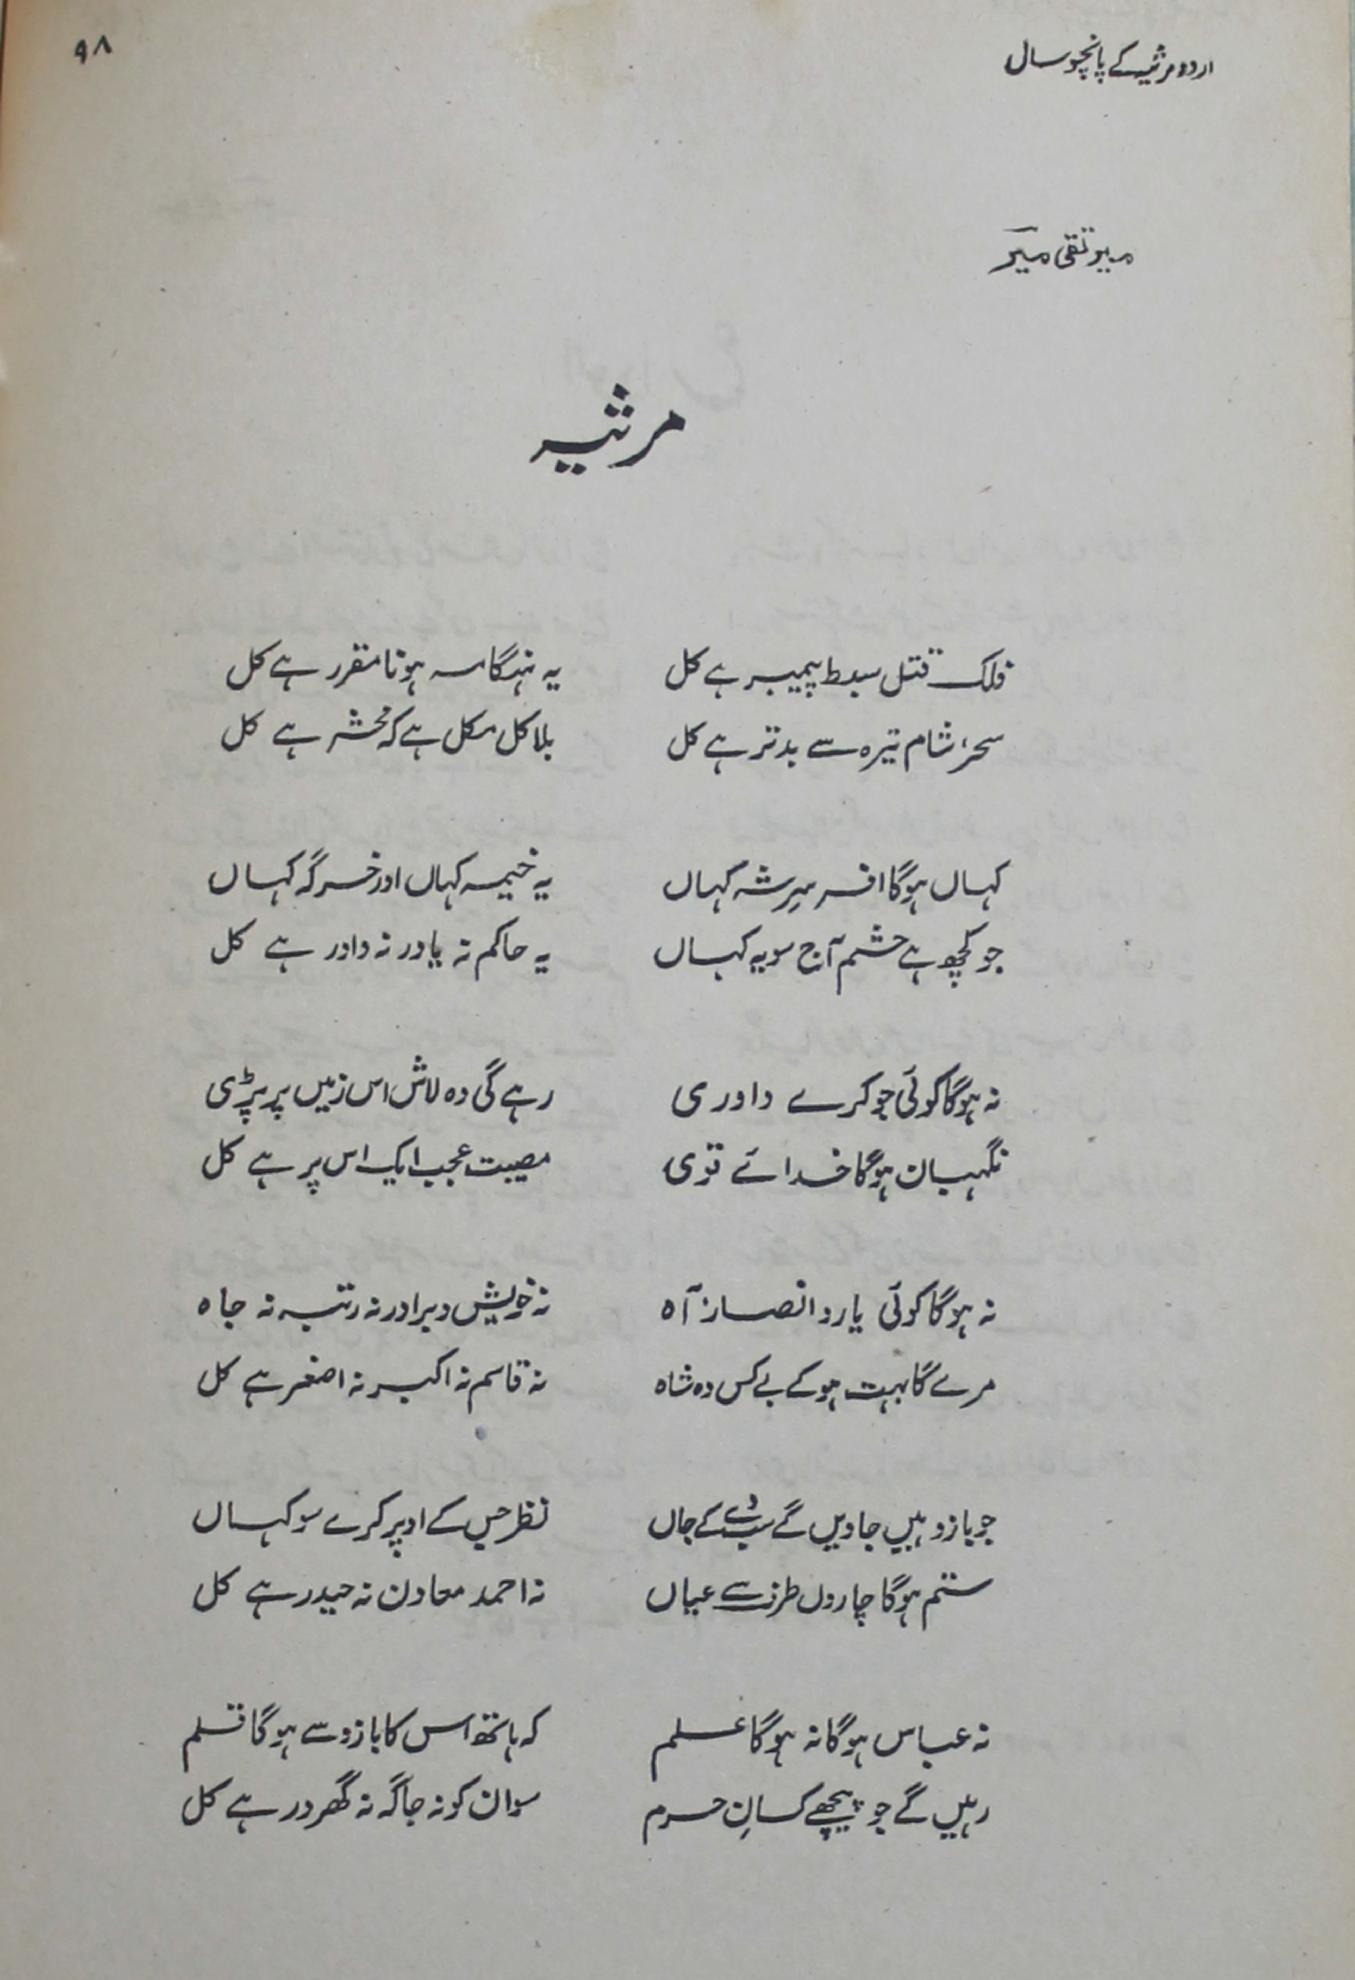 اردو مرثیے کے پانچسو سال
۹۸
میر تقی میر
مرثیہ
فلک قتل سبط پیمبر ہے کل یہ ہنگامہ ہونا مقرر ہے کل
سحر، شام تیرہ سے بدتر ہے کل بلا کل مکل ہے کہ محشر ہے کل
کہاں ہوگا افسر سرِ شہ کہاں یہ خیمہ کہاں اور خرگہ کہاں
جو کچھ ہے حشم آج سو یہ کہاں یہ حاکم نہ یاور نہ داور ہے کل
نہ ہوگا کوئی جو کرے داوری رہے گی وہ لاش اس زمیں پر پڑی
نگہبان ہوگا خدائے قوی مصیبت عجب ایک اس پر ہے کل
نہ ہوگا کوئی یار و انصار آہ نہ خویش و برادر نہ رتبہ نہ جاہ
مرے گا بہت ہو کے بے کس وہ شاہ نہ قاسم نہ اکبر نہ اصغر ہے کل
جو بازو ہیں جاویں گے سب دے کے جاں نظر جس کے اوپر کرے سو کہاں
ستم ہوگا چاروں طرف سے عیاں نہ احمد معاون نہ حیدر ہے کل
نہ عباس ہوگا نہ ہوگا علم کہ ہاتھ اس کا بازو سے ہوگا قلم
رہیں گے جو پیچھے کسانِ حرم سو ان کو نہ جاگہ نہ گھر در ہے کل